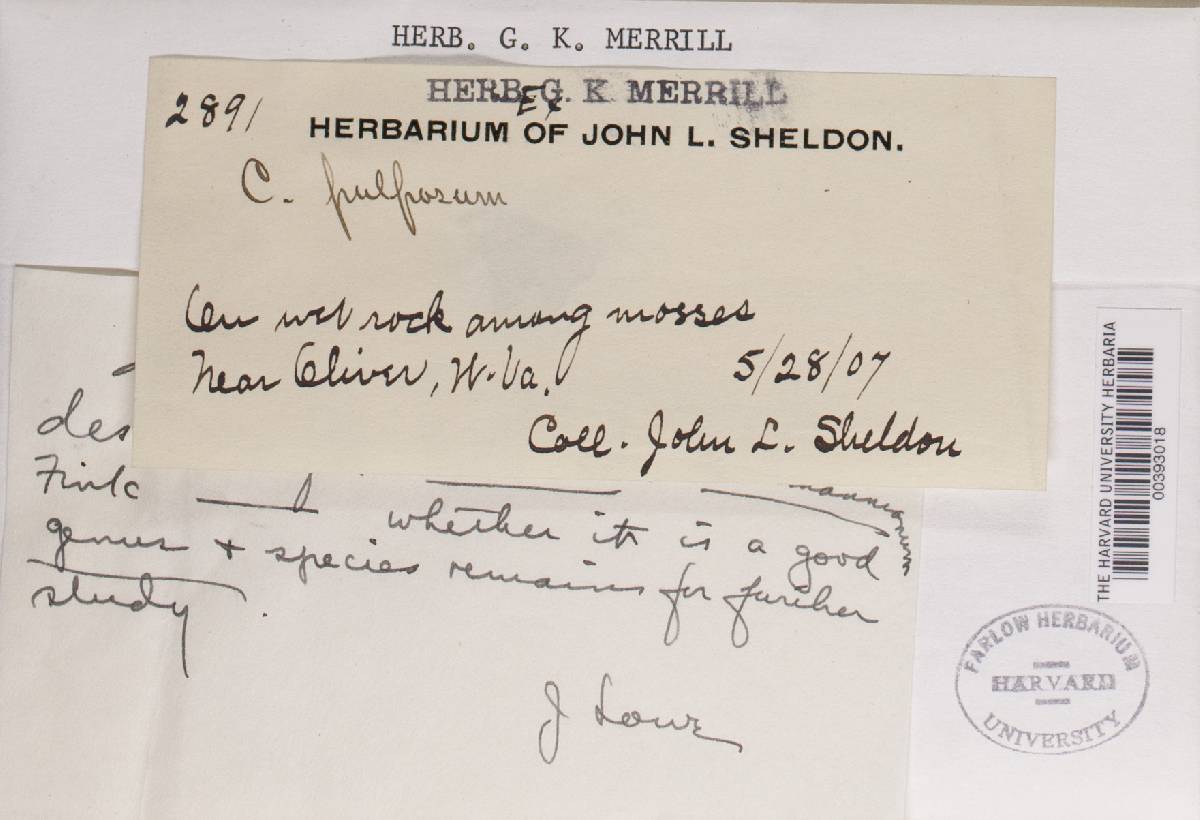 HERB. G. K. MERRILL
HERB. G. K MERRILL
Ex
2891
HERBARIUM OF JOHN L. SHELDON.
C. pulposum
On wet rock among mosses
Near Oliver, W. Va. 5/28/07
Coll. John L. Sheldon
des
Fink
whether it is a good
genus + species remains for further
study.
J Lowe
THE HARVARD UNIVERSITY HERBARIA
00393018
FARLOW HERBARIUM
HARVARD
UNIVERSITY